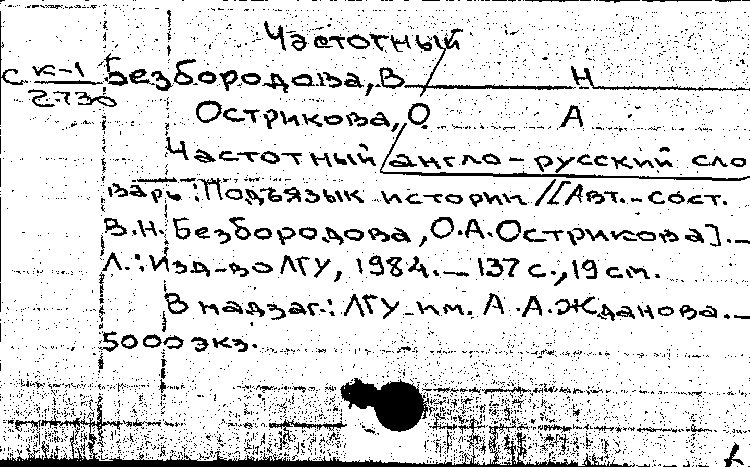 Частотный
с к-1 Безбородова, В Н
2730
Острикова, О А
Частотный англо-русский сло
варь: Подъязык истории //[Авт.-сост.
В.Н. Безбородова, О.А. Острикова]. —
Л.: Изд-во ЛГУ, 1984. — 137 с., 19 см.
В надзаг.: ЛГУ им. А.А. Жданова. —
5000 экз.